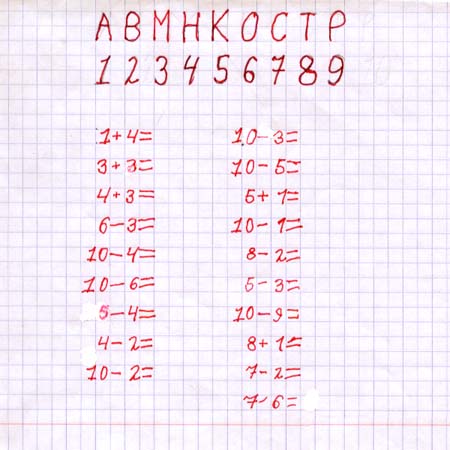 АВМНКОСТР
123456789
1+4=
3+3=
4+3=
6-3=
10-4=
10-6=
5-4=
4-2=
10-2=
10-3=
10-5=
5+1=
10-1=
8-2=
5-3=
10-9=
8+1=
7-2=
7-6=